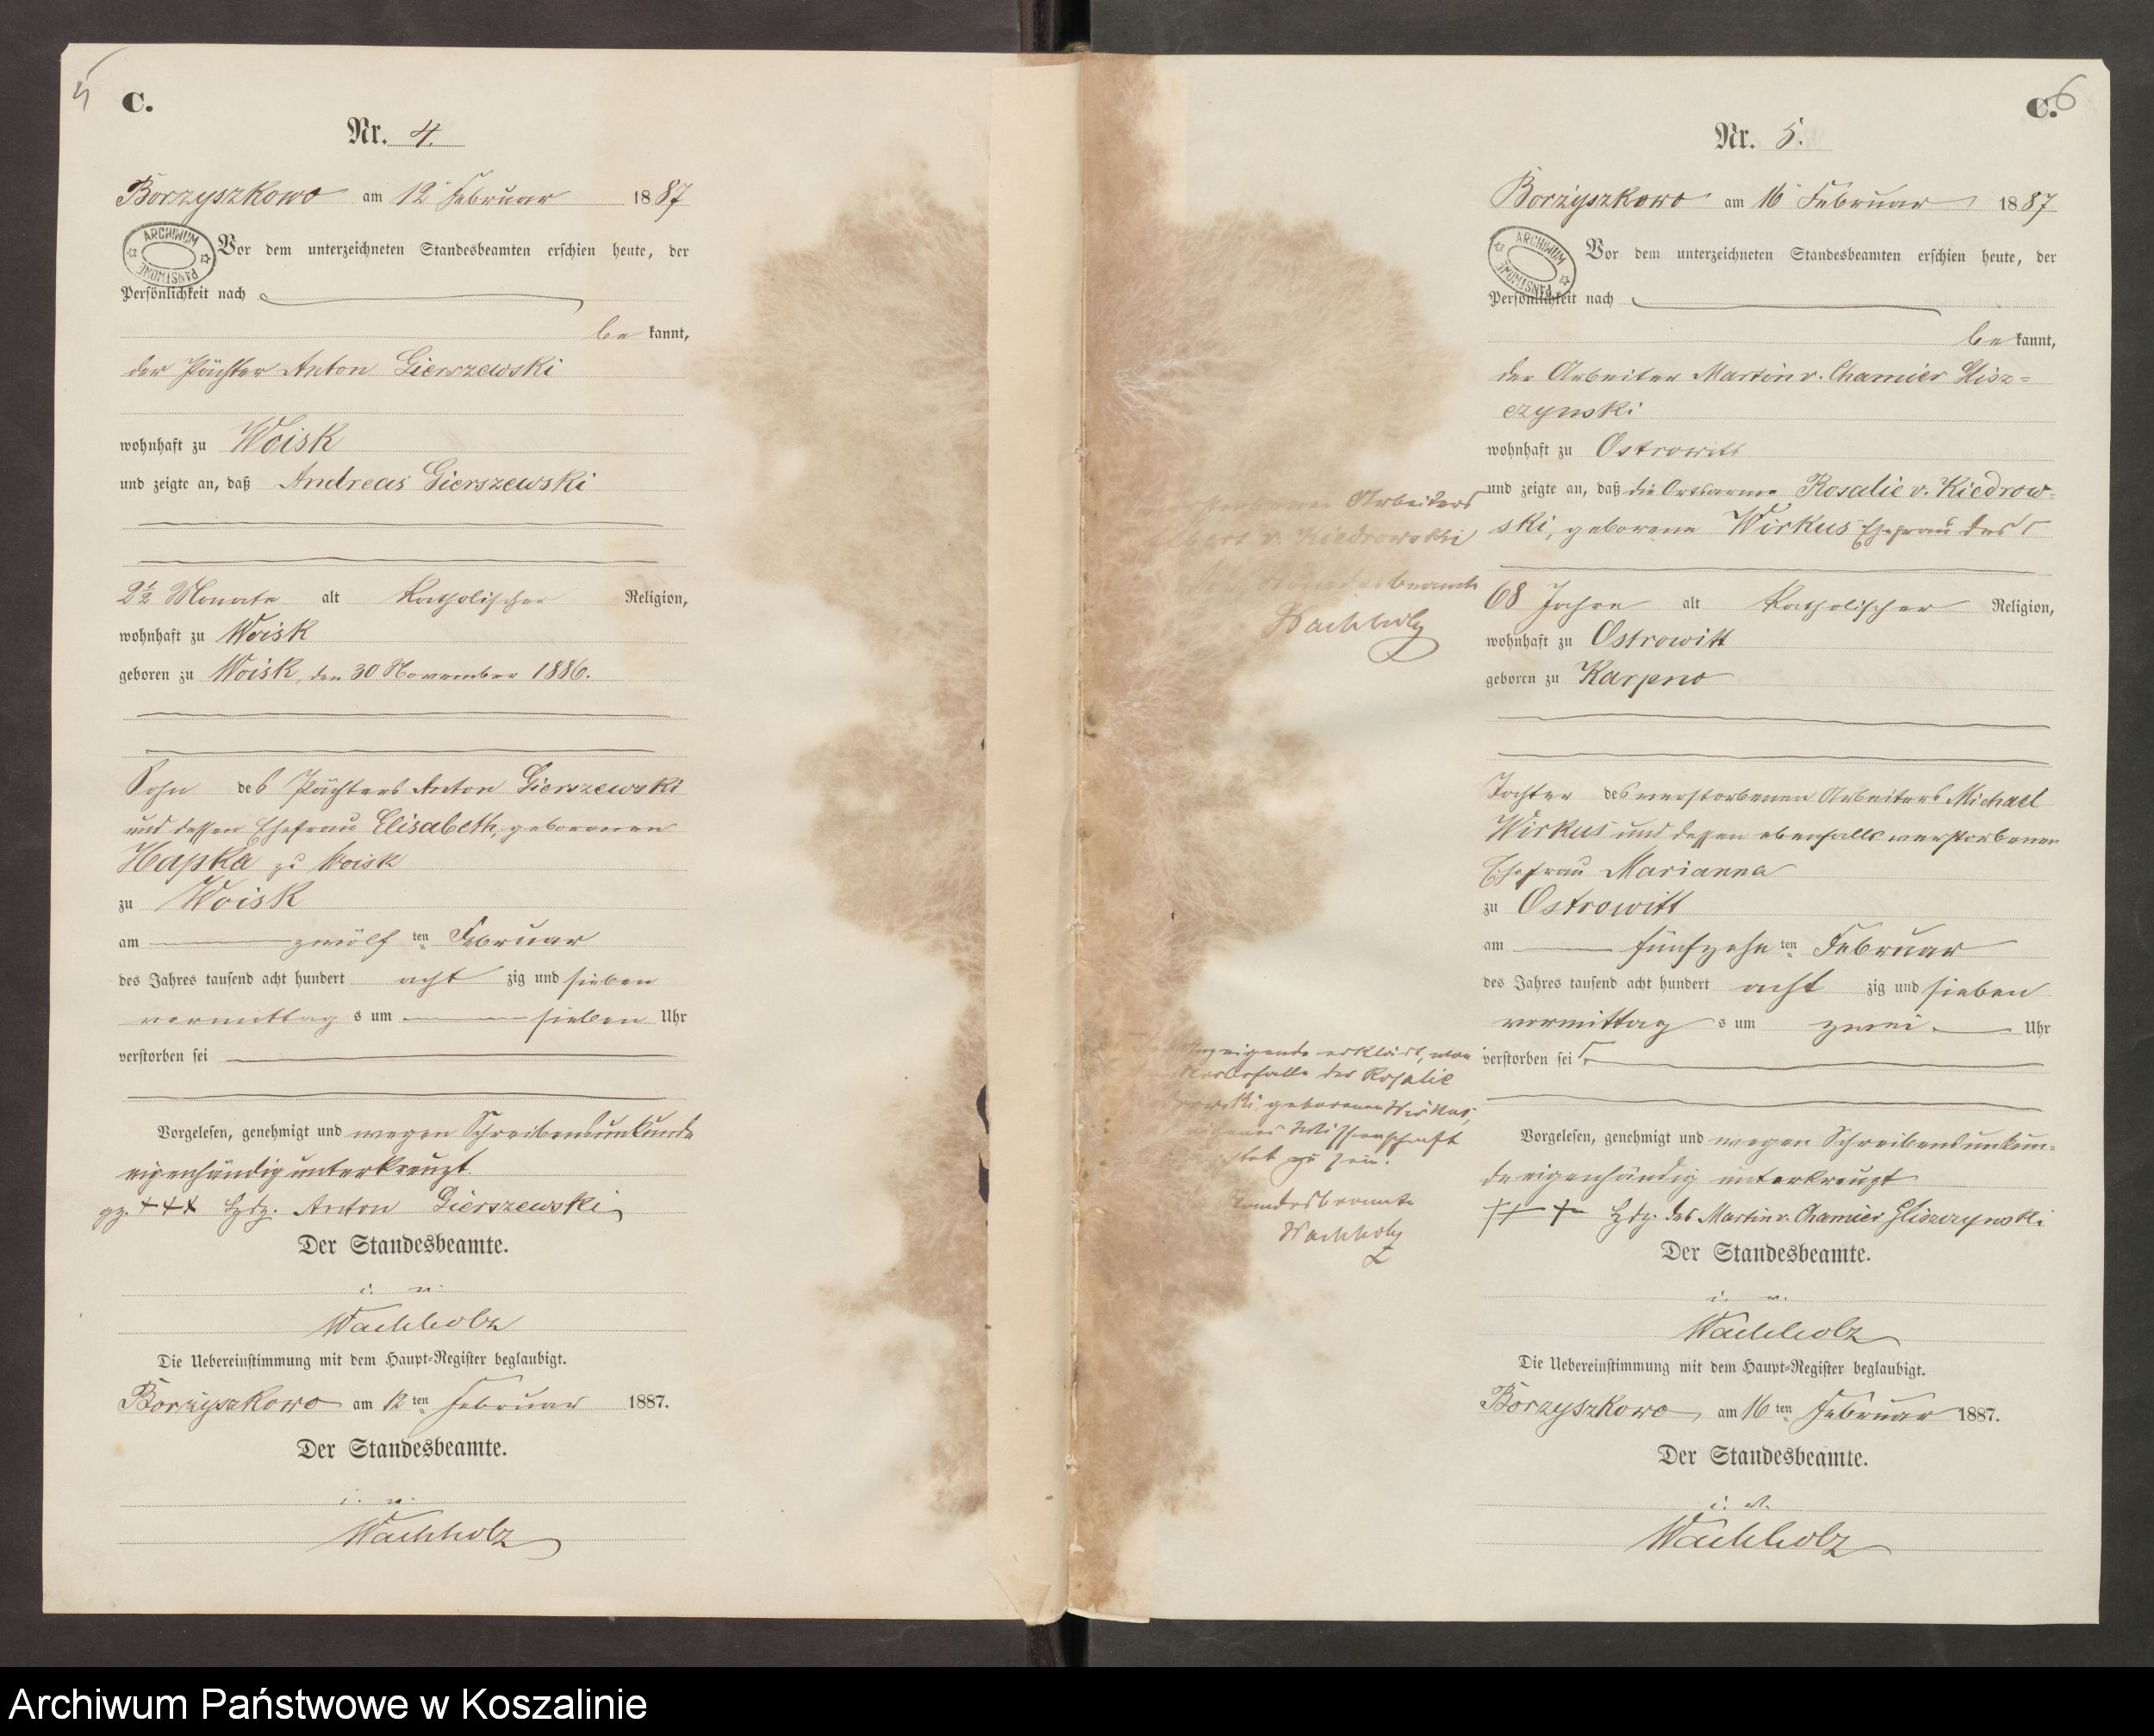 5
C.
Nr. 4.
Borzyszkowo am 12 Februar 1887
ARCHIWUM PAŃSTWOWE
Vor dem unterzeichneten Standesbeamten erschien heute, der
Persönlichkeit nach
be kannt,
der Pächter Anton Gierszewski
wohnhaft zu Woisk
und zeigte an, daß Andreas Gierszewski
2½ Monate alt katholischer Religion,
wohnhaft zu Woisk
geboren zu Woisk, den 30 November 1886.
Sohn des Pächters Anton Gierszewski
und dessen Ehefrau Elisabeth, geborenen
Hapka zu Woisk
zu Woisk
am zwölf ten Februar
des Jahres tausend acht hundert acht zig und sieben
vormittag s um sieben Uhr
verstorben sei
Vorgelesen, genehmigt und wegen Schreibensunkunde
eigenhändig unterkreuzt
gz. +++ Hdz. Anton Gierszewski
Der Standesbeamte.
i. v.
Wachholz
Die Uebereinstimmung mit dem Haupt=Register beglaubigt.
Borzyszkowo am 12 ten Februar 1887.
Der Standesbeamte.
i. v.
Wachholz
6
C.
Nr. 5.
Borzyszkowo am 16 Februar 1887
ARCHIWUM PAŃSTWOWE
Vor dem unterzeichneten Standesbeamten erschien heute, der
Persönlichkeit nach
be kannt,
der Arbeiter Martin v. Chamier Glisz=
czynski
wohnhaft zu Ostrowitt
und zeigte an, daß die Ortsarme Rosalie v. Kiedrow=
ski, geborene Wirkus Ehefrau des
Arbeiters
v. Kiedrowski
Wachholz
68 Jahre alt katholischer Religion,
wohnhaft zu Ostrowitt
geboren zu Karpno
Tochter des verstorbenen Arbeiters Michael
Wirkus und dessen ebenfalls verstorbenen
Ehefrau Marianna
zu Ostrowitt
am fünfzehn ten Februar
des Jahres tausend acht hundert acht zig und sieben
vormittag s um zwei Uhr
verstorben sei
erklärt, von
der Rosalie
geborenen Wirkus,
Wissenschaft
zu sein.
Wachholz
Vorgelesen, genehmigt und wegen Schreibensunkun=
de eigenhändig unterkreuzt
+++ Hdz. des Martin v. Chamier Gliszczynski
Der Standesbeamte.
i. v.
Wachholz
Die Uebereinstimmung mit dem Haupt=Register beglaubigt.
Borzyszkowo, am 16 ten Februar 1887.
Der Standesbeamte.
i. v.
Wachholz
Archiwum Państwowe w Koszalinie